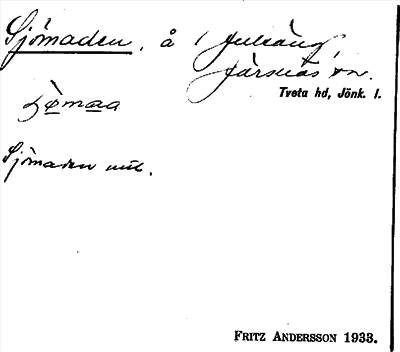 Sjömaden, å 1 Jularäng,
Järsnäs sn.
Tveta hd, Jönk. l.
Sjömaden
FRITZ ANDERSSON 1933.